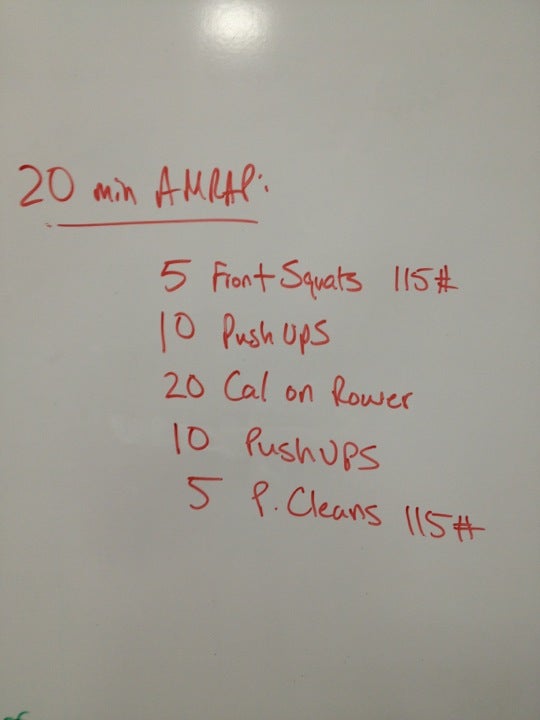 20 min AMRAP:
5 Front Squats 115#
10 Push Ups
20 Cal on Rower
10 Push UPS
5 P. Cleans 115#